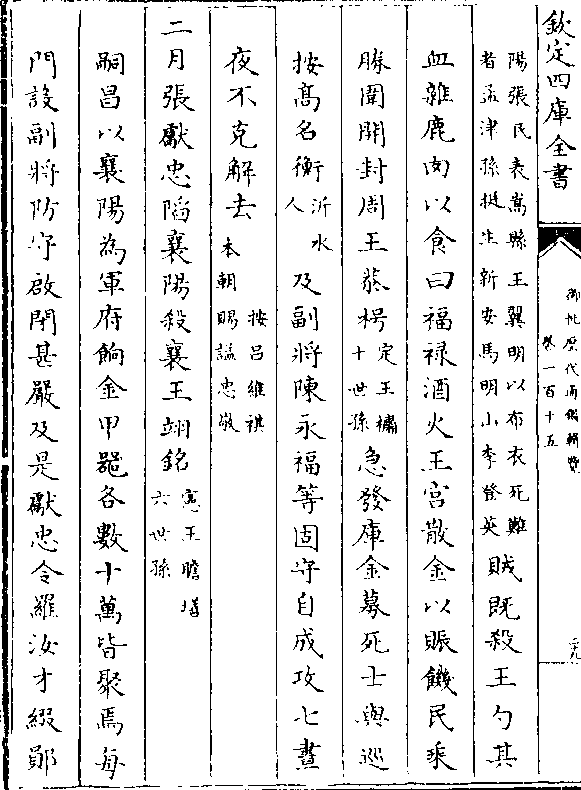 欽定四庫全書
御批歷代通鑑輯覽
卷一百十五
二十九
陽張民表嵩縣王翼明以布衣死難
者孟津孫挺生新安馬明山李登英
賊既殺王勺其
血雜鹿肉以食曰福祿酒火王宮散金以賑饑民乘
勝圍開封周王恭枵
定王橚
十世孫
急發庫金募死士與巡
按高名衡
沂水
人
及副將陳永福等固守自成攻七晝
夜不克解去
按呂維祺
本朝賜諡忠敬
二月張獻忠陷襄陽殺襄王翊銘
憲王瞻墡
六世孫
嗣昌以襄陽為軍府餉金甲器各數十萬皆聚焉每
門設副將防守啟閉甚嚴及是獻忠令羅汝才綴鄖